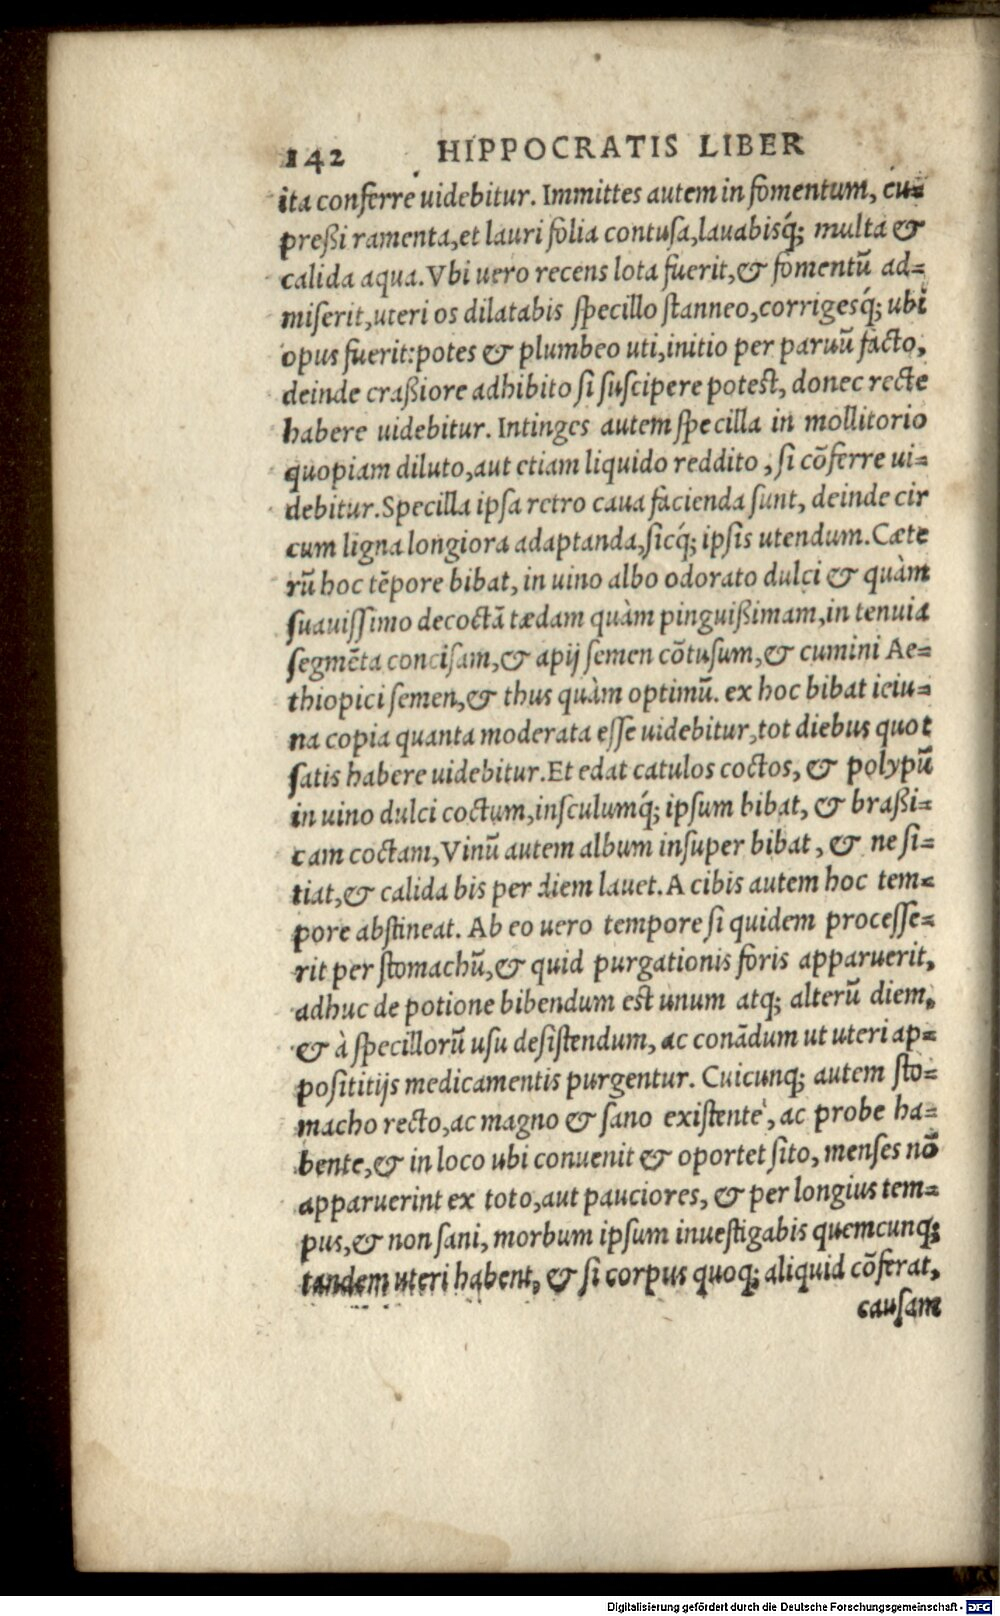 142 HIPPOCRATIS LIBER
ita conferre uidebitur. Immittes autem in fomentum, cu=
preßi ramenta, et lauri folia contusa, lauabisq́; multa &
calida aqua. Vbi uero recens lota fuerit, & fomentũ ad=
miserit, uteri os dilatabis specillo stanneo, corrigesq́; ubi
opus fuerit: potes & plumbeo uti, initio per paruũ facto,
deinde craßiore adhibito si suscipere potest, donec recte
habere uidebitur. Intinges autem specilla in mollitorio
quopiam diluto, aut etiam liquido reddito, si cõferre ui=
debitur. Specilla ipsa retro caua facienda sunt, deinde cir
cum ligna longiora adaptanda, sicq́; ipsis utendum. Cæte
rũ hoc tẽpore bibat, in uino albo odorato dulci & quàm
suauissimo decoctã tædam quàm pinguißimam, in tenuia
segmẽta concisam, & apij semen cõtusum, & cumini Ae=
thiopici semen, & thus quàm optimũ. ex hoc bibat ieiu=
na copia quanta moderata esse uidebitur, tot diebus quot
satis habere uidebitur. Et edat catulos coctos, & polypũ
in uino dulci coctum, insculumq́; ipsum bibat, & braßi=
cam coctam, Vinũ autem album insuper bibat, & ne si=
tiat, & calida bis per diem lauet. A cibis autem hoc tem=
pore abstineat. Ab eo uero tempore si quidem processe=
rit per stomachũ, & quid purgationis foris apparuerit,
adhuc de potione bibendum est unum atq; alterũ diem,
& à specillorũ usu desistendum, ac conãdum ut uteri ap=
posititijs medicamentis purgentur. Cuicunq; autem sto=
macho recto, ac magno & sano existente, ac probe ha=
bente, & in loco ubi conuenit & oportet sito, menses nõ
apparuerint ex toto, aut pauciores, & per longius tem=
pus, & non sani, morbum ipsum inuestigabis quemcunq;
tandem uteri habent, & si corpus quoq; aliquid cõferat,
causam
Digitalisierung gefördert durch die Deutsche Forschungsgemeinschaft - DFG